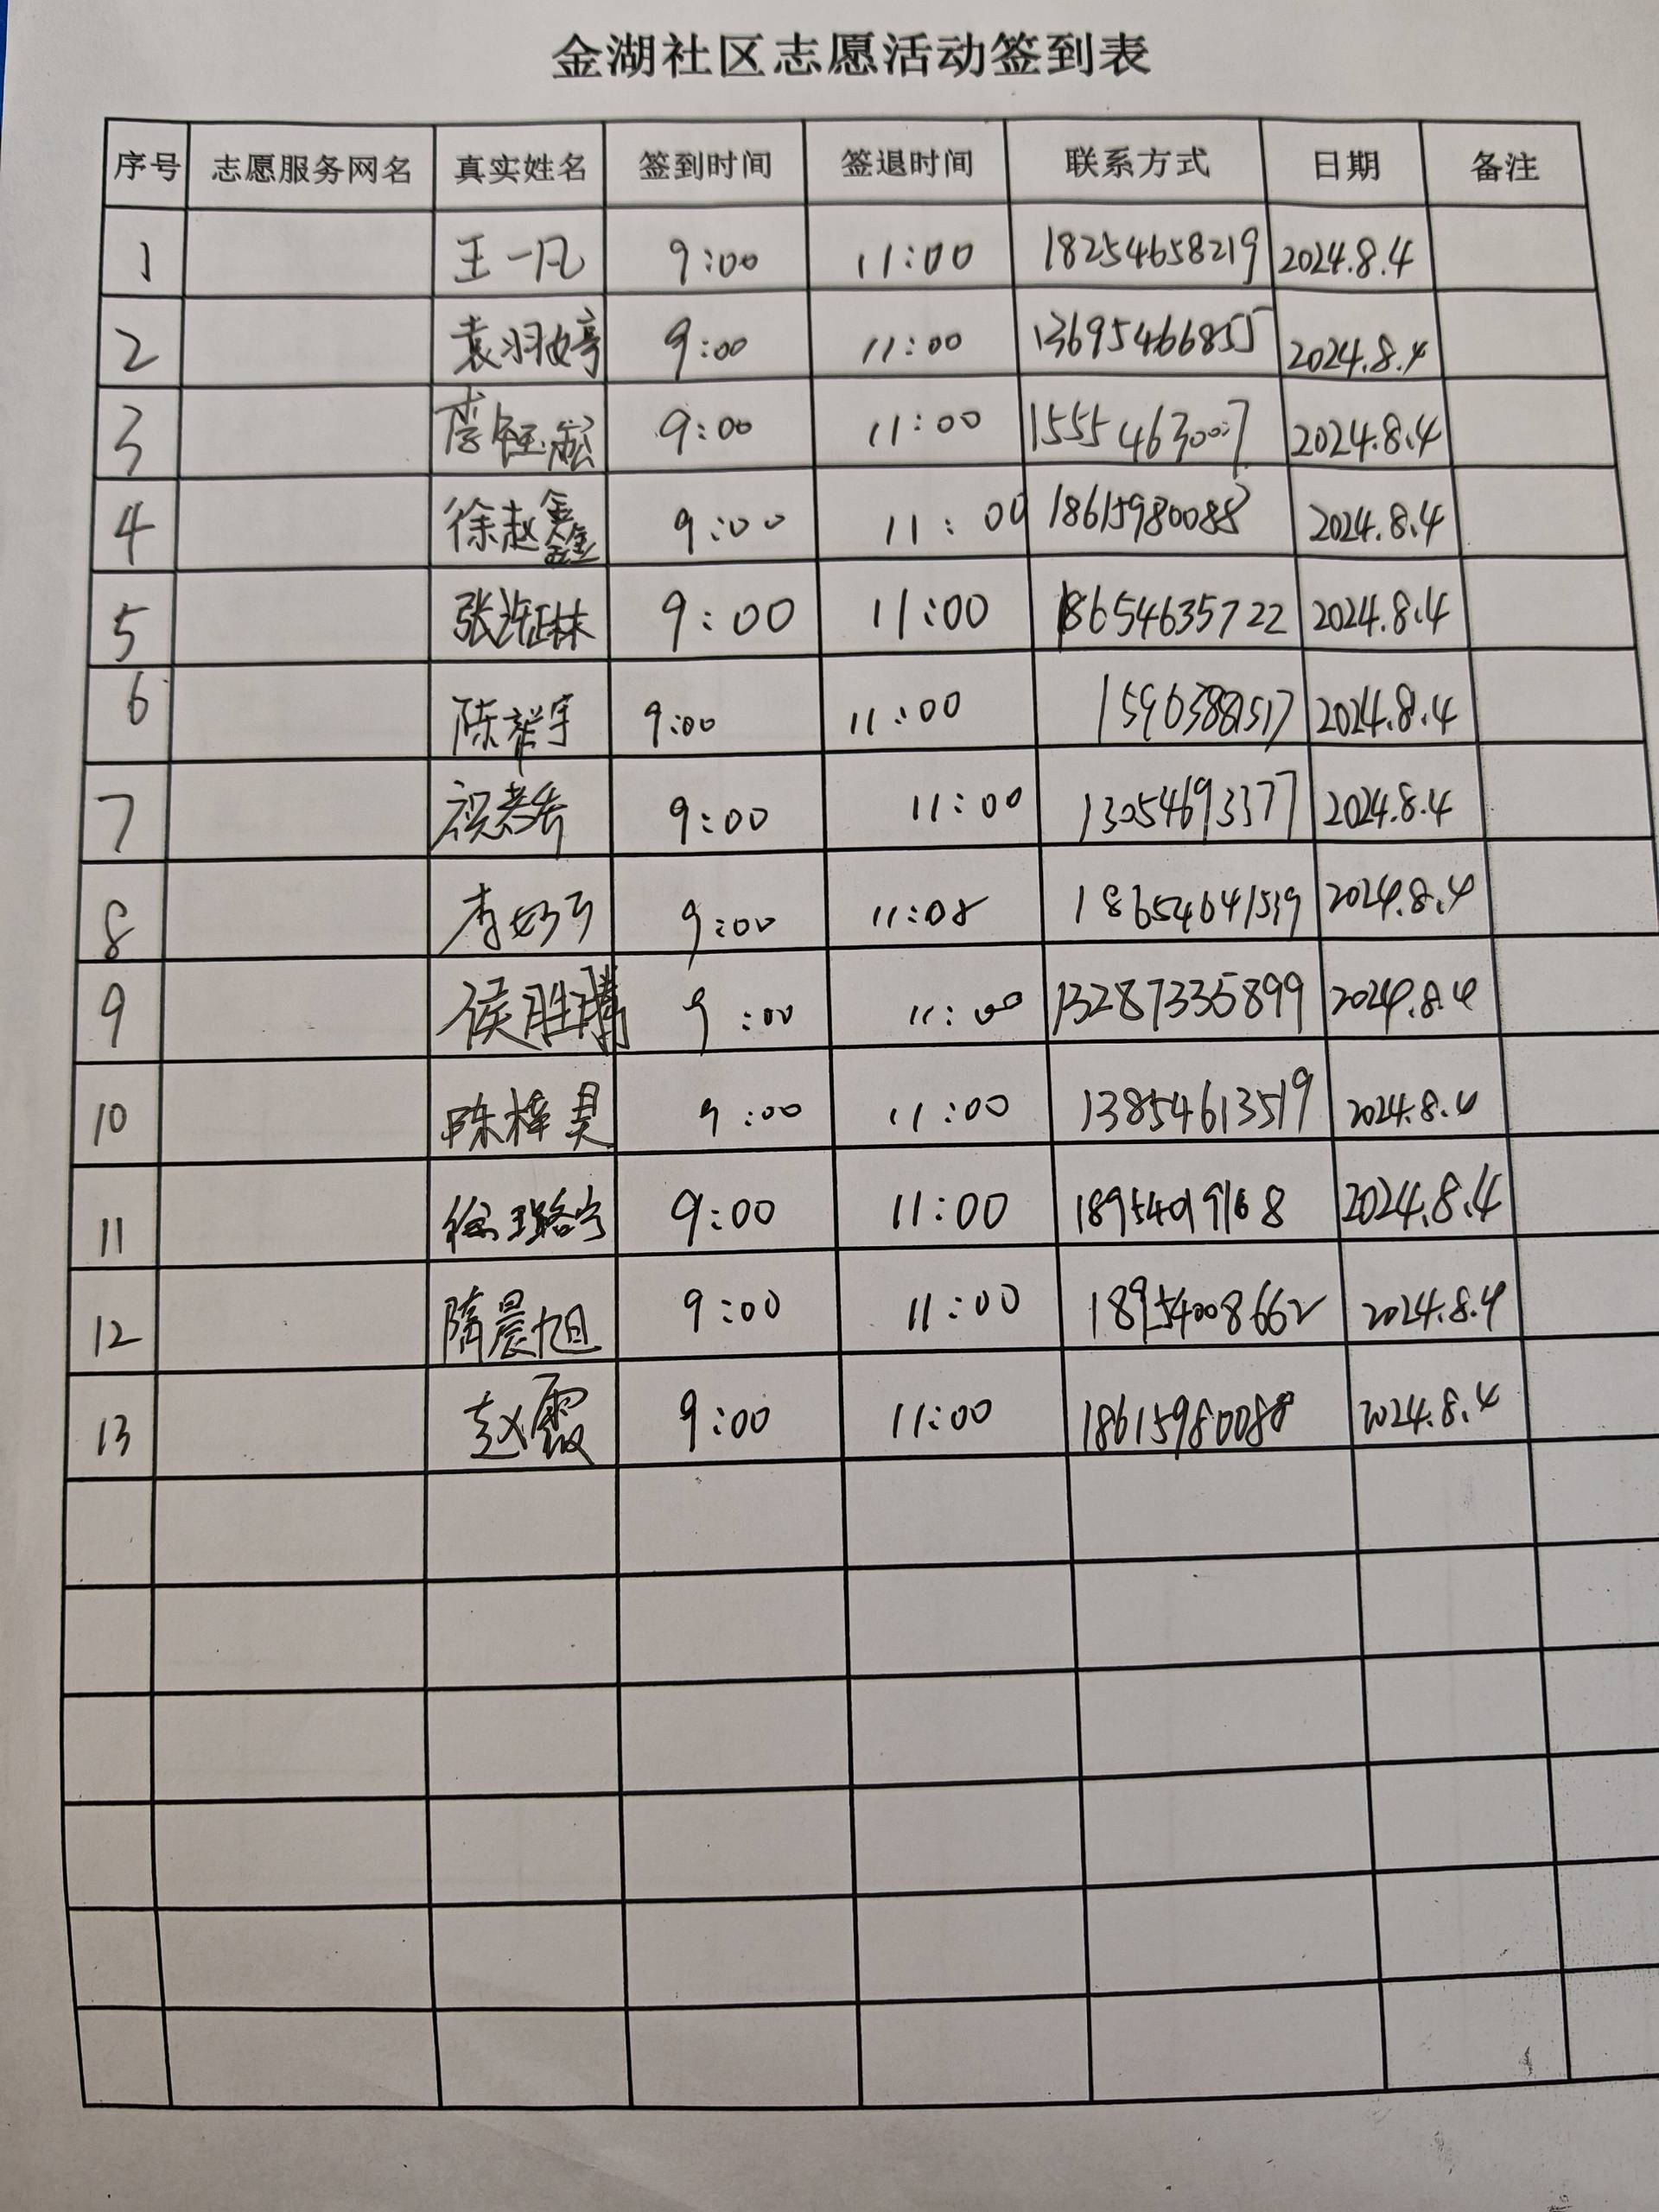 金湖社区志愿活动签到表
序号 志愿服务网名 真实姓名 签到时间 签退时间 联系方式 日期 备注
1 王一凡 9:00 11:00 18254658219 2024.8.4
2 袁羽婷 9:00 11:00 13695466855 2024.8.4
3 李钰 9:00 11:00 15554630007 2024.8.4
4 徐赵鑫 9:00 11:00 18615980088 2024.8.4
5 张 9:00 11:00 18654635722 2024.8.4
6 陈 宇 9:00 11:00 2024.8.4
7 祝 9:00 11:00 13054693377 2024.8.4
8 李 9:00 11:00 18654641539 2024.8.4
9 侯胜腾 9:00 11:00 13287335899 2024.8.4
10 陈梓昊 9:00 11:00 13854613519 2024.8.4
11 徐璐宁 9:00 11:00 18954019168 2024.8.4
12 隋晨旭 9:00 11:00 18954008662 2024.8.4
13 赵霞 9:00 11:00 18615980088 2024.8.4